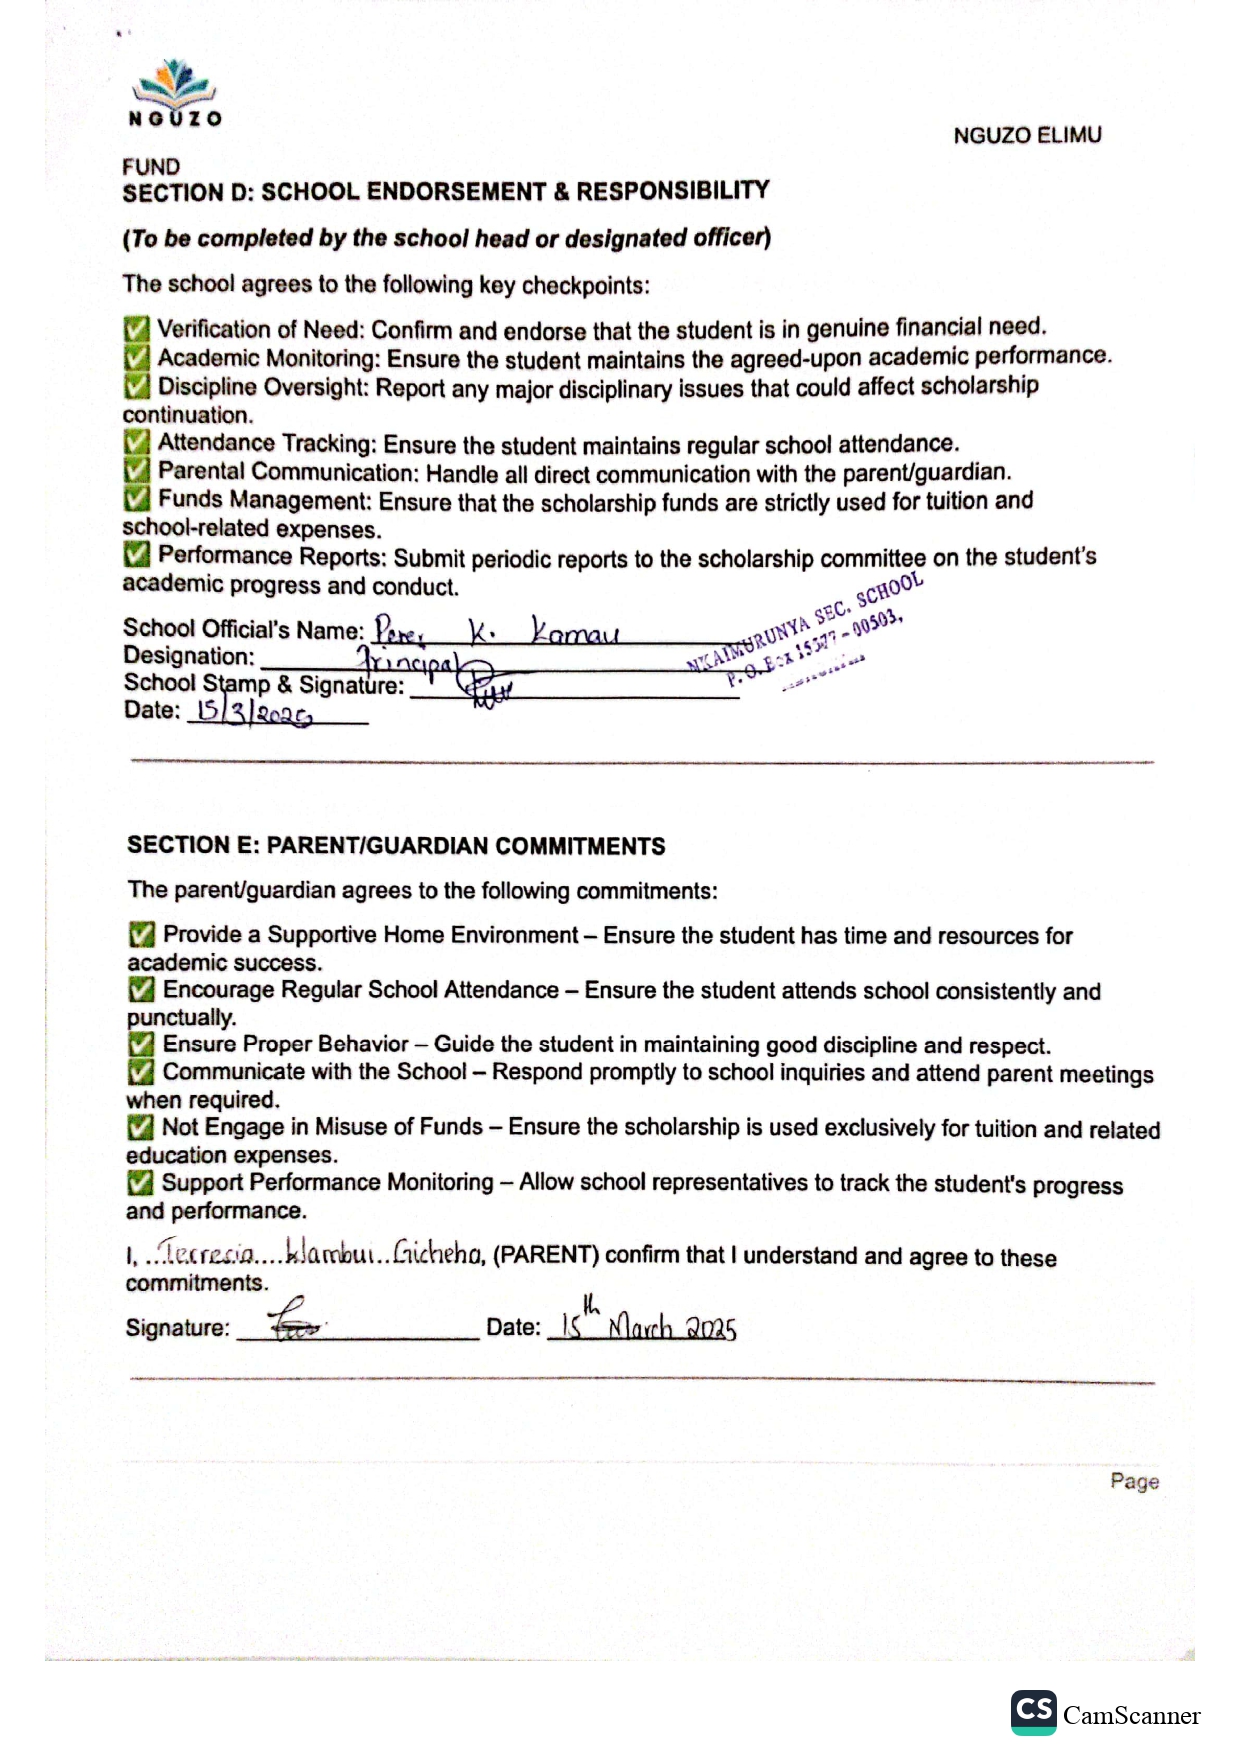 NGUZO
NGUZO ELIMU
FUND
SECTION D: SCHOOL ENDORSEMENT & RESPONSIBILITY
(To be completed by the school head or designated officer)
The school agrees to the following key checkpoints:
✅ Verification of Need: Confirm and endorse that the student is in genuine financial need.
✅ Academic Monitoring: Ensure the student maintains the agreed-upon academic performance.
✅ Discipline Oversight: Report any major disciplinary issues that could affect scholarship
continuation.
✅ Attendance Tracking: Ensure the student maintains regular school attendance.
✅ Parental Communication: Handle all direct communication with the parent/guardian.
✅ Funds Management: Ensure that the scholarship funds are strictly used for tuition and
school-related expenses.
✅ Performance Reports: Submit periodic reports to the scholarship committee on the student's
academic progress and conduct.
School Official's Name: K. Kamau
Designation: Principal
School Stamp & Signature:
Date: 15/3/2025
NKAIMURUNYA SEC. SCHOOL
P. O. Box 15377 - 00503,
SECTION E: PARENT/GUARDIAN COMMITMENTS
The parent/guardian agrees to the following commitments:
✅ Provide a Supportive Home Environment – Ensure the student has time and resources for
academic success.
✅ Encourage Regular School Attendance – Ensure the student attends school consistently and
punctually.
✅ Ensure Proper Behavior – Guide the student in maintaining good discipline and respect.
✅ Communicate with the School – Respond promptly to school inquiries and attend parent meetings
when required.
✅ Not Engage in Misuse of Funds – Ensure the scholarship is used exclusively for tuition and related
education expenses.
✅ Support Performance Monitoring – Allow school representatives to track the student's progress
and performance.
I, ...Tecresia....Wambui..Gicheha, (PARENT) confirm that I understand and agree to these
commitments.
Signature: Date: 15th March 2025
Page
CS CamScanner